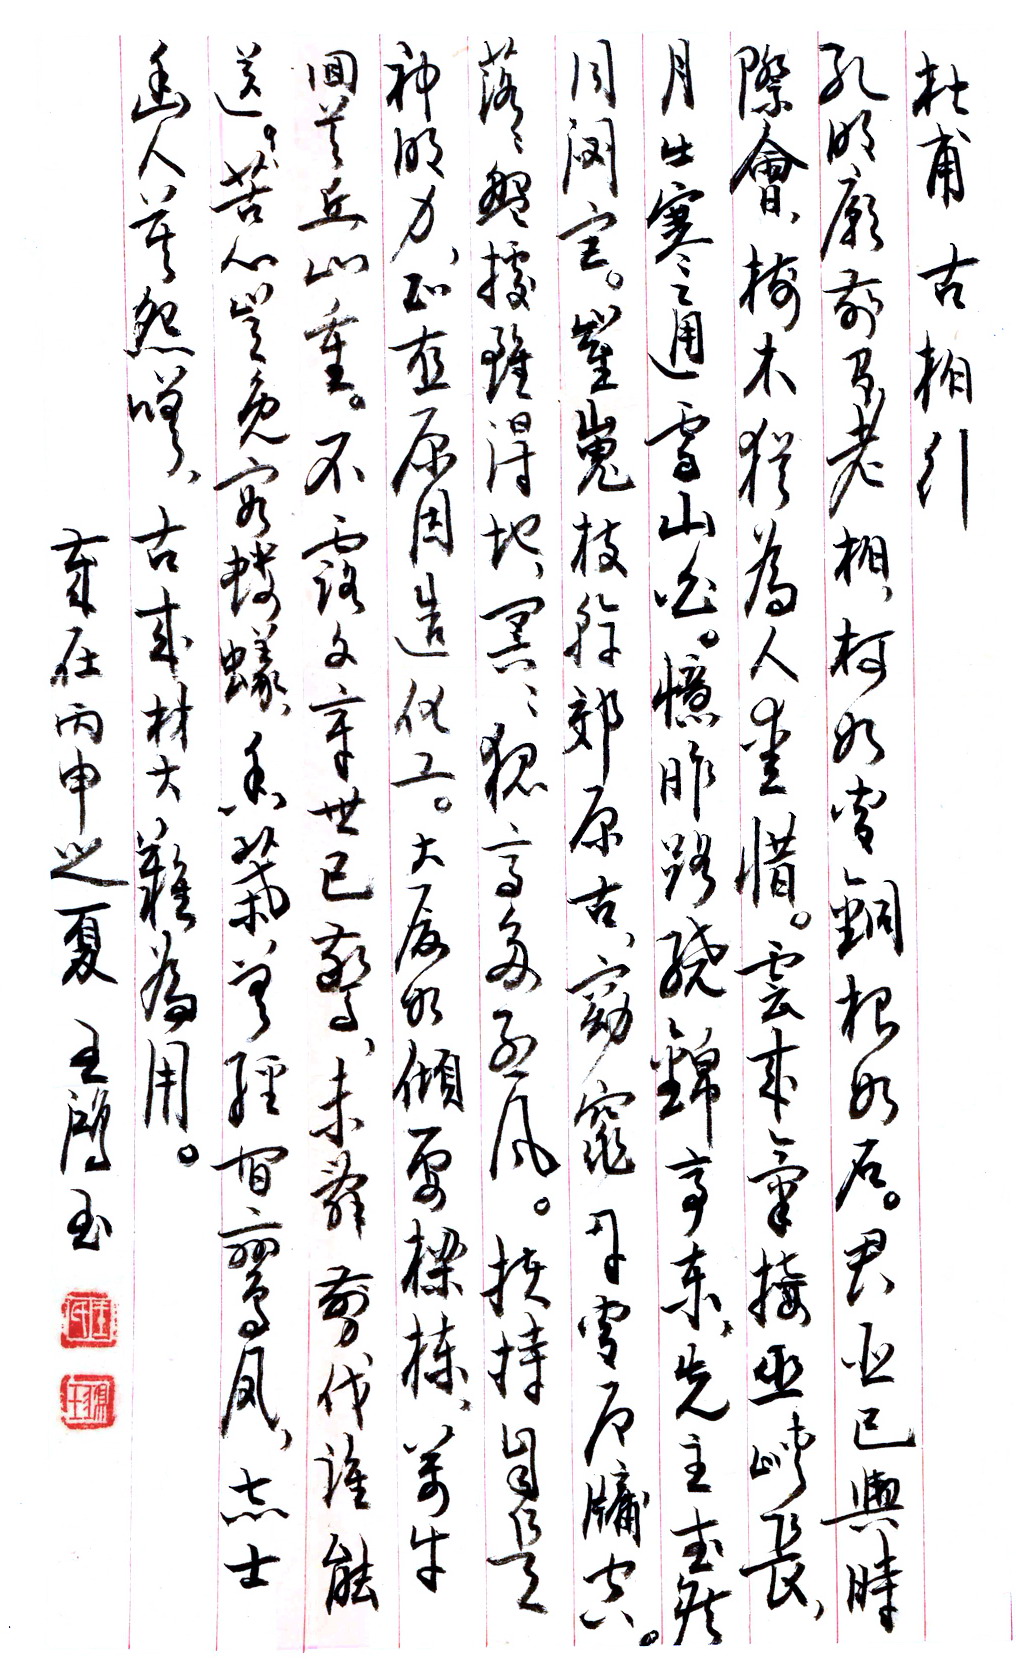 杜甫 古柏行
孔明廟前有老柏，柯如青銅根如石。君臣已與時
際會，樹木猶為人愛惜。雲來氣接巫峽長，
月出寒通雪山白。憶昨路繞錦亭東，先主武侯
同閟宮。崔嵬枝幹郊原古，窈窕丹青户牖空。
落々盤據雖得地，冥々孤高多烈风。扶持自是
神明力，正直原因造化工。大厦如傾要樑棟，萬牛
囬首丘山重。不露文章世已驚，未辭剪伐誰能
送。苦心豈免容螻蟻，香葉曾經宿鸞凤，志士
幽人莫怨嗟，古來材大難為用。
歲在丙申之夏 王鴻玉